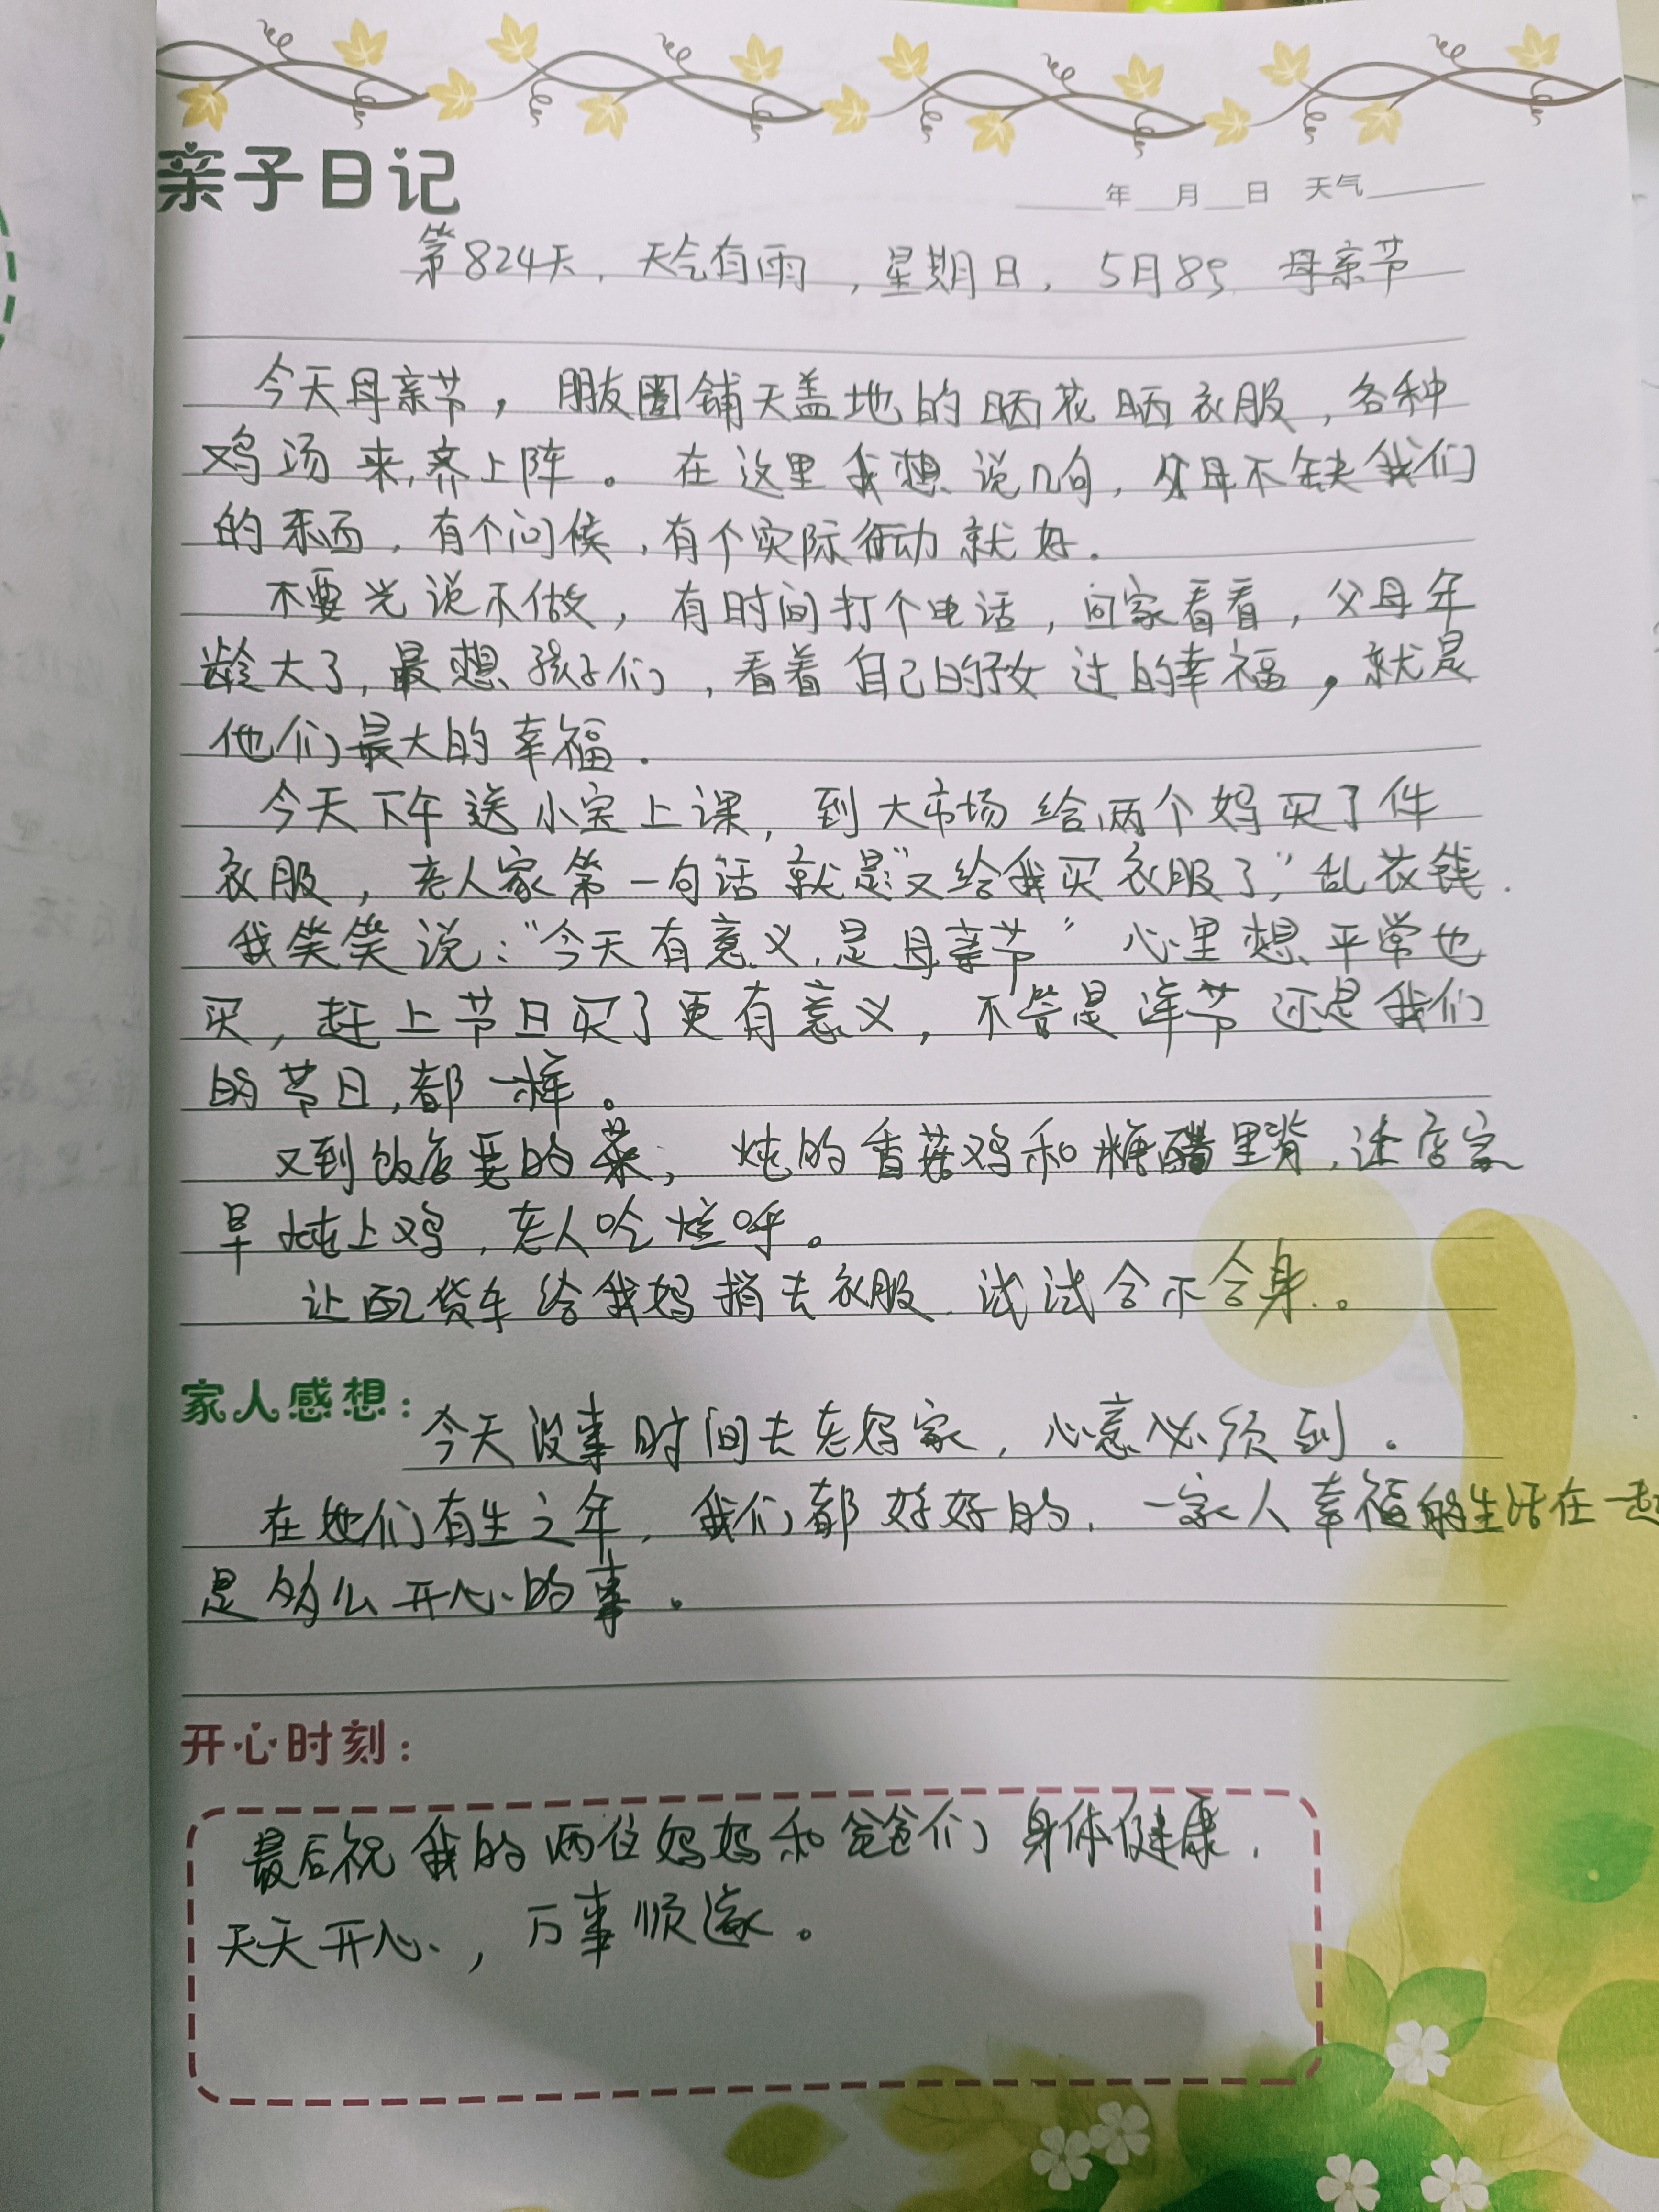 亲子日记
年 月 日 天气
第824天，天气有雨，星期日，5月8号 母亲节
今天母亲节，朋友圈铺天盖地的晒花晒衣服，各种
鸡汤来，齐上阵。在这里我想说几句，父母不缺我们
的东西，有个问候，有个实际行动就好.
不要光说不做，有时间打个电话，回家看看，父母年
龄大了，最想孩子们，看着自己的子女过的幸福，就是
他们最大的幸福.
今天下午送小宝上课，到大市场给两个妈买了件
衣服，老人家第一句话就是"又给我买衣服了，"乱花钱.
我笑笑说："今天有意义，是母亲节"心里想平常也
买，赶上节日买了更有意义，不管是洋节还是我们
的节日，都一样。
又到饭店要的菜，炖的香菇鸡和糖醋里脊，让店家
早炖上鸡，老人吃烂呼。
让配货车给我妈捎去衣服.试试合不合身.。
家人感想：今天没事时间去老妈家，心意必须到.
在她们有生之年，我们都好好的，一家人幸福的生活在一起
是多么开心的事.
开心时刻：
最后祝我的两位妈妈和爸爸们身体健康，
天天开心，万事顺遂。